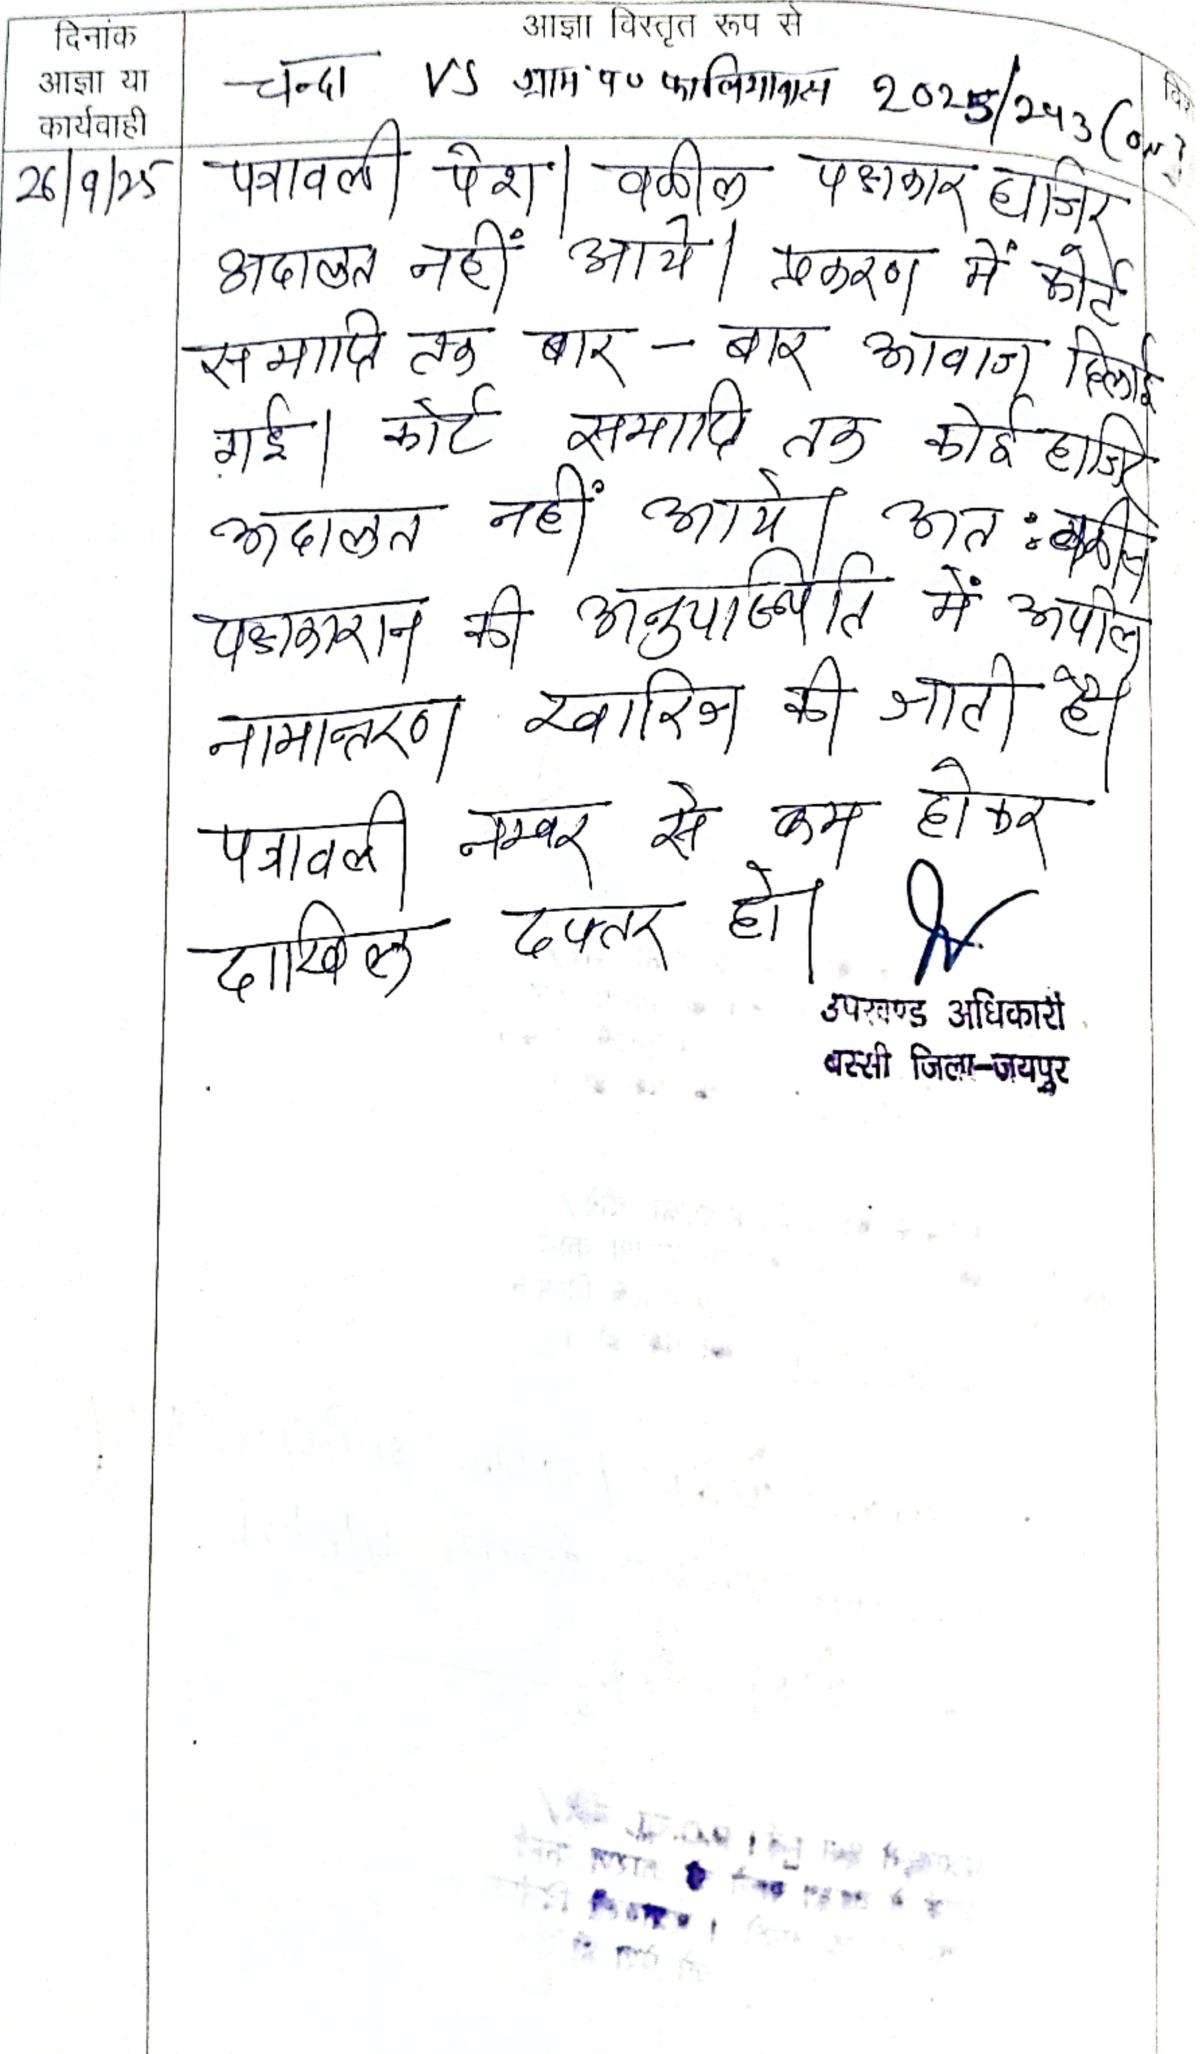 दिनांक
आज्ञा या
कार्यवाही
आज्ञा विस्तृत रूप से
चन्दा VS ग्राम पं० 2025/243
26/9/25
पत्रावली पेश। वकील पक्षकार हाजिर
अदालत नहीं आये। प्रकरण में कोर्ट
समाप्ति तक बार - बार आवाज दिलाई
गई। कोर्ट समाप्ति तक कोई हाजिर
अदालत नहीं आये। अत: वकील
पक्षकारान की अनुपस्थिति में अपील
नामान्तरण खारिज की जाती है।
पत्रावली नम्बर से कम होकर
दाखिल दफ्तर हो।
उपखण्ड अधिकारी
बस्सी जिला-जयपुर